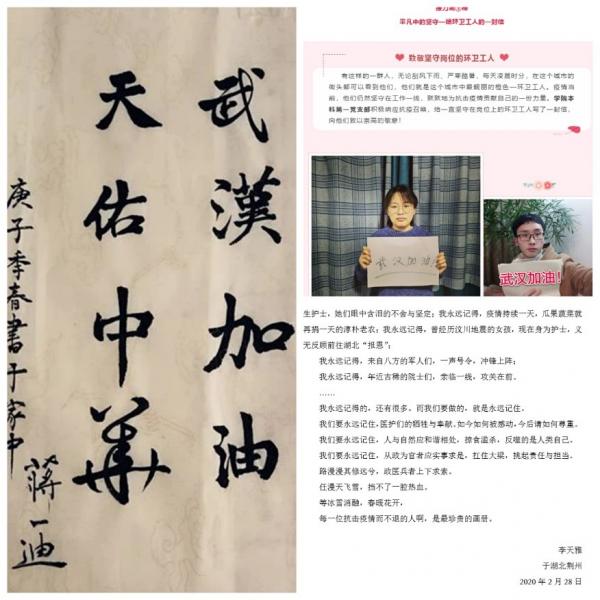 武漢加油
天佑中華
庚子季春書于家中
蔣一迪
平凡中的坚守—给环卫工人的一封信
致敬坚守岗位的环卫工人
有这样的一群人，无论刮风下雨、严寒酷暑，每天凌晨时分，在这个城市的
街头都可以看到他们，他们就是这个城市中最靓丽的橙色—环卫工人。疫情当
前，他们仍然坚守在工作一线，默默地为抗击疫情贡献自己的一份力量。学院本
科第一党支部积极响应抗疫召唤，给一直坚守在岗位上的环卫工人写了一封信，
向他们致以崇高的敬意！
武汉加油！
武汉加油！
生护士，她们眼中含泪的不舍与坚定；我永远记得，疫情持续一天，瓜果蔬菜就
再捐一天的淳朴老农；我永远记得，曾经历汶川地震的女孩，现在身为护士，义
无反顾前往湖北“报恩”；
我永远记得，来自八方的军人们，一声号令，冲锋上阵；
我永远记得，年近古稀的院士们，亲临一线，攻关在前。
……
我永远记得的，还有很多。而我们要做的，就是永远记住。
我们要永远记住，医护们的牺牲与奉献，如今如何被感动，今后请如何尊重。
我们要永远记住，人与自然应和谐相处，掠食滥杀，反噬的是人类自己。
我们要永远记住，从政为官者应实事求是，扛住大梁，挑起责任与担当。
路漫漫其修远兮，政医兵者上下求索。
任漫天飞雪，挡不了一腔热血。
等冰雪消融，春暖花开，
每一位抗击疫情而不退的人啊，是最珍贵的画册。
李天雅
于湖北荆州
2020 年 2 月 28 日